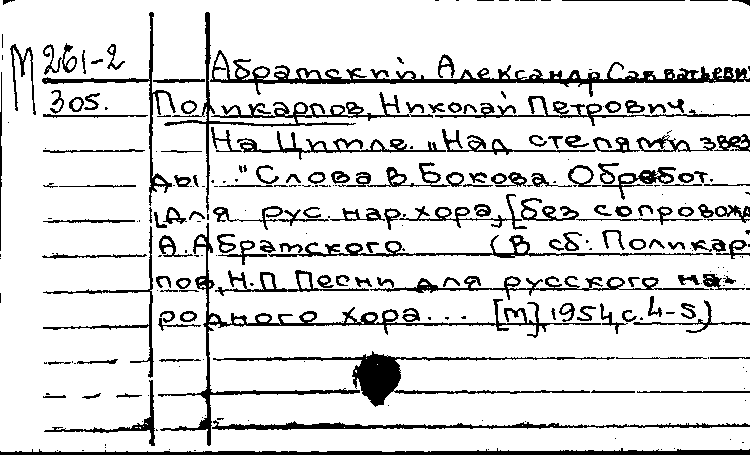 М 261-2
305.
Абрамский, Александр Савватьеви
Поликарпов, Николай Петрович.
На Цимле. "Над степями звез
ды..." Слова В. Бокова. Обработ.
[для рус. нар. хора, [без сопровожд
А. Абрамского (В сб: Поликар
пов, Н.П. Песни для русского на-
родного хора... [М.], 1954, с. 4-5.)